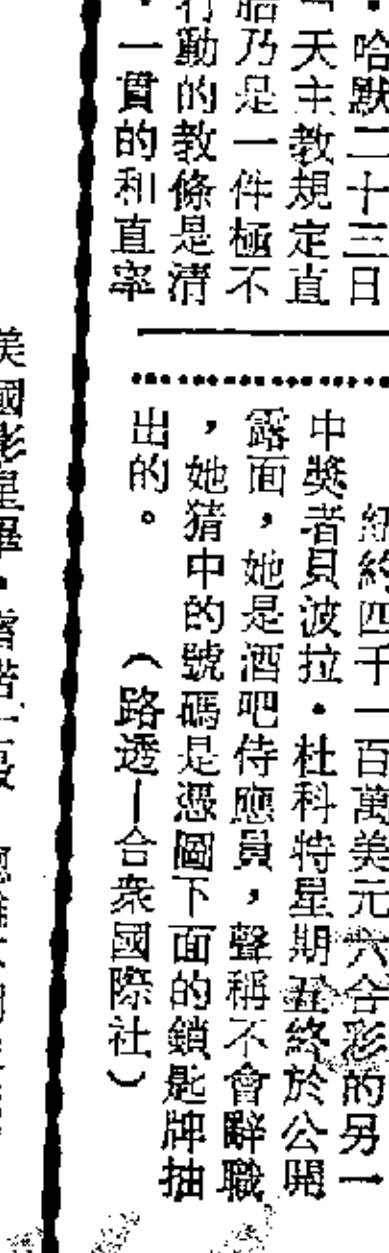 ・哈默二十三日
「天主教規定直
胎乃是一件極不
行動的教條是清
・一貫的和直率
紐約四千一百萬美元六合彩的另一
中獎者貝波拉・杜科特星期五終於公開
露面，她是酒吧侍應員，聲稱不會辭職
，她猜中的號碼是憑圖下面的鎖匙牌抽
出的。　（路透—合衆國際社）
美國影星畢・